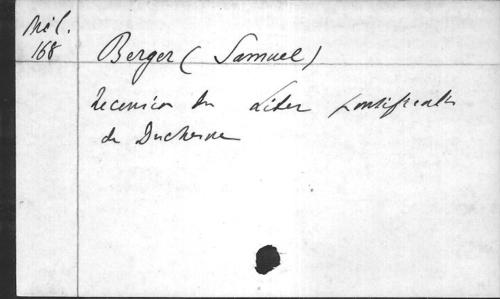 Mél.
168
Berger (Samuel)
recension du Liber pontificalis
de Duchesne